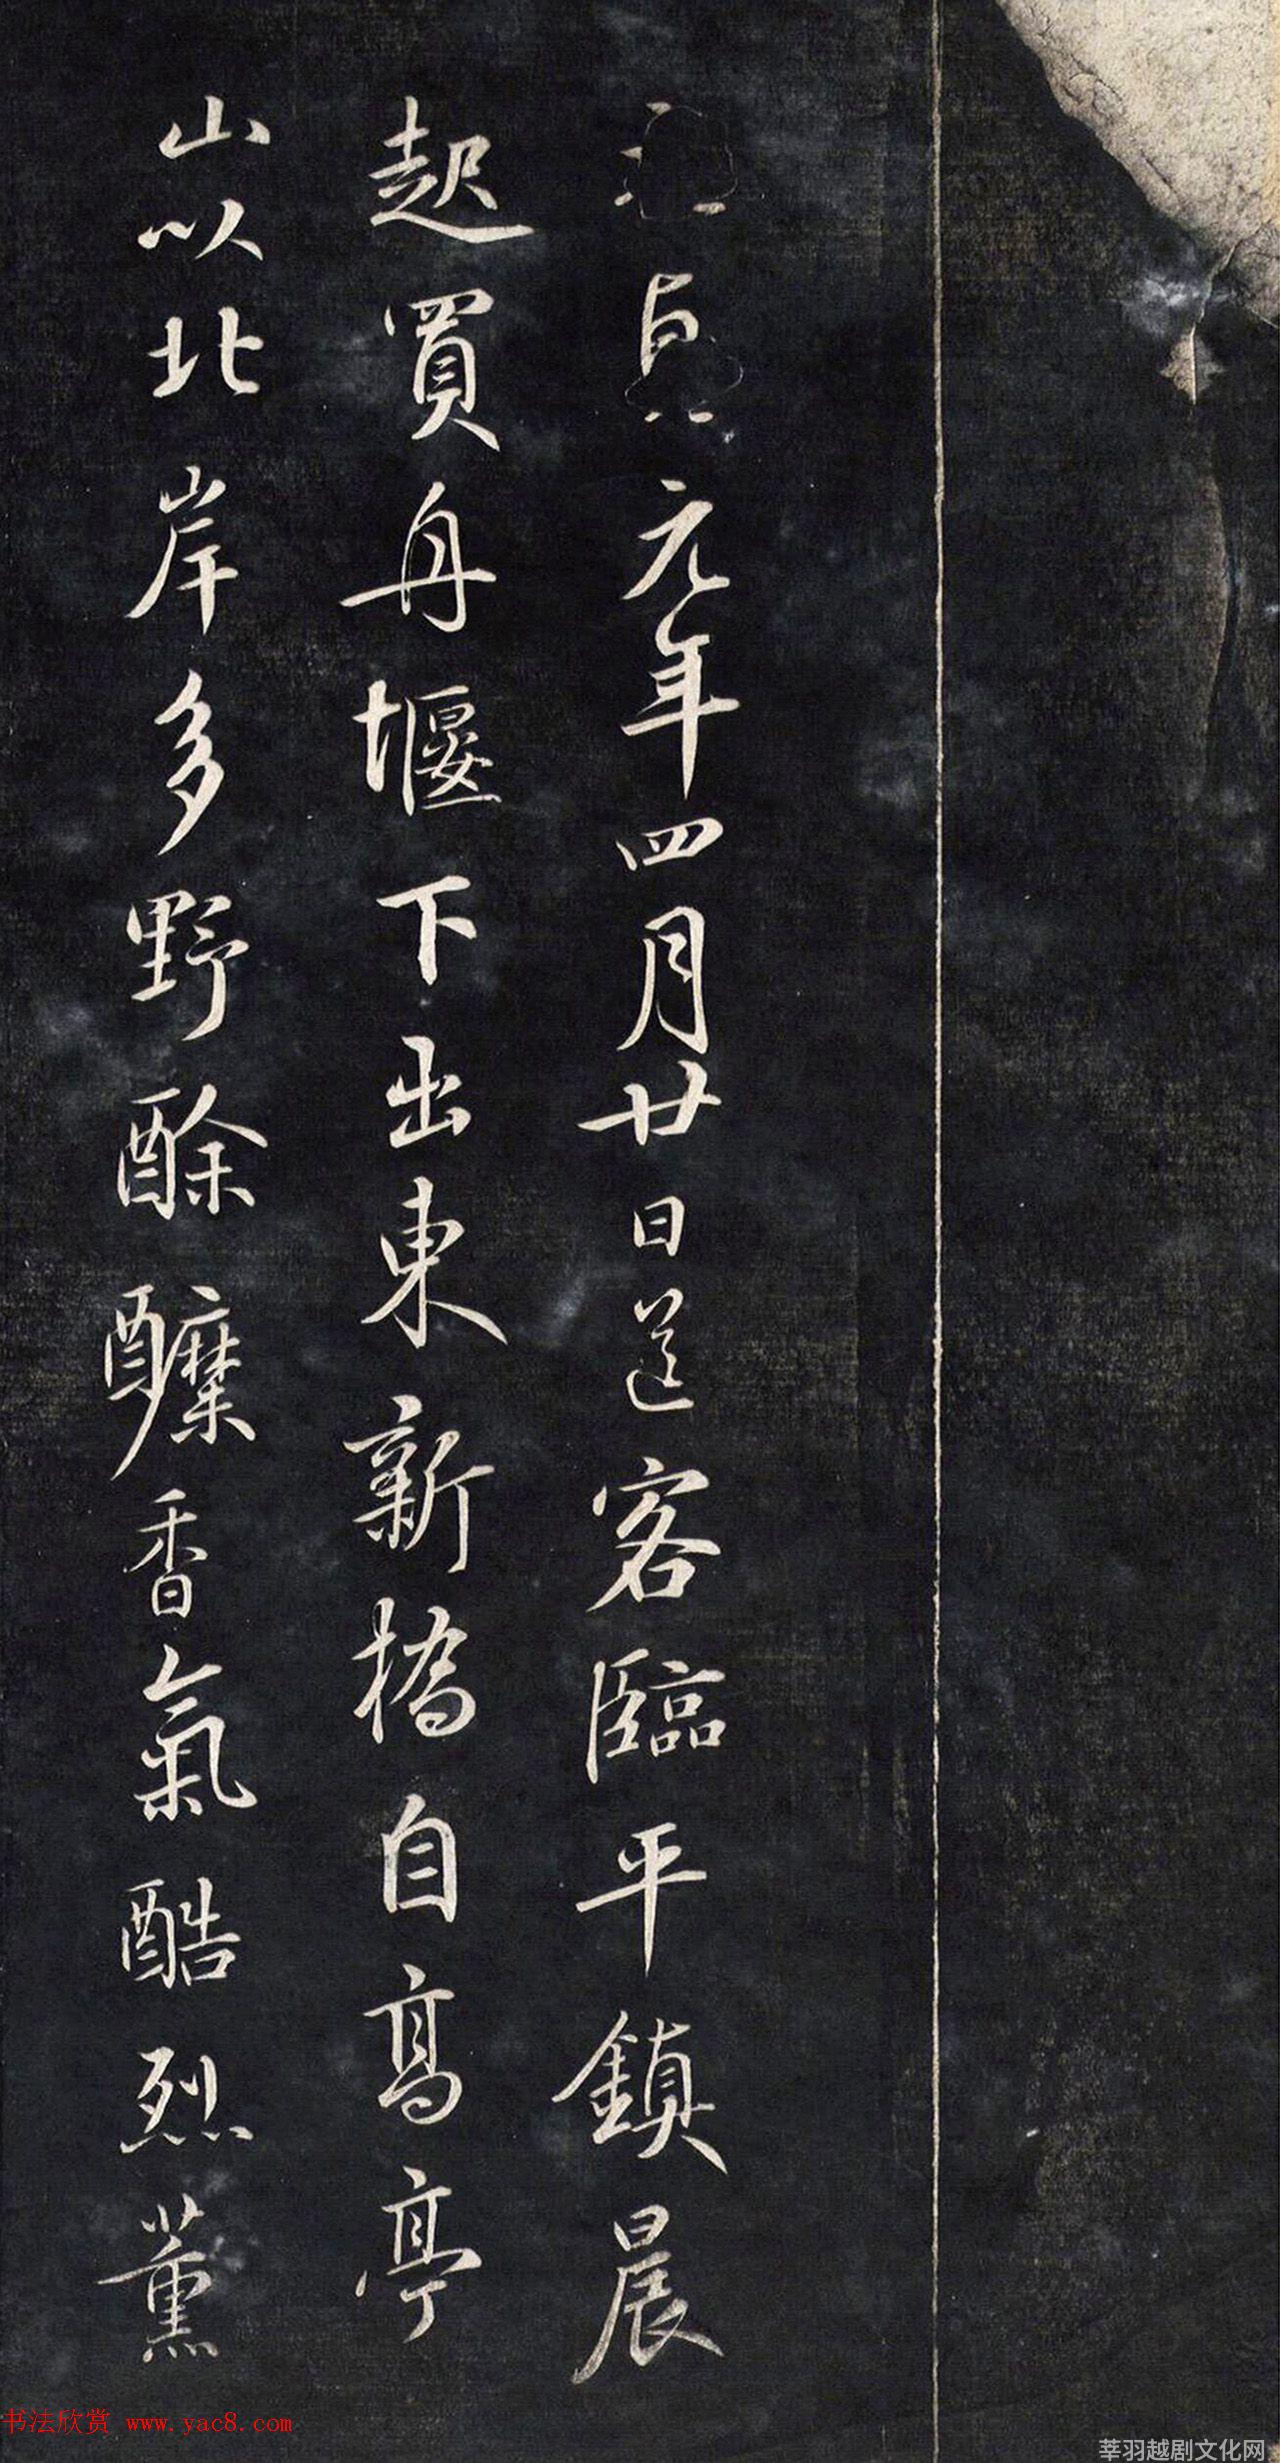 貞元年四月廿日送客臨平鎮晨
起買舟堰下出東新橋自高亭
山以北岸多野酴醾香氣酷烈薰
书法欣赏 www.yac8.com
莘羽越剧文化网